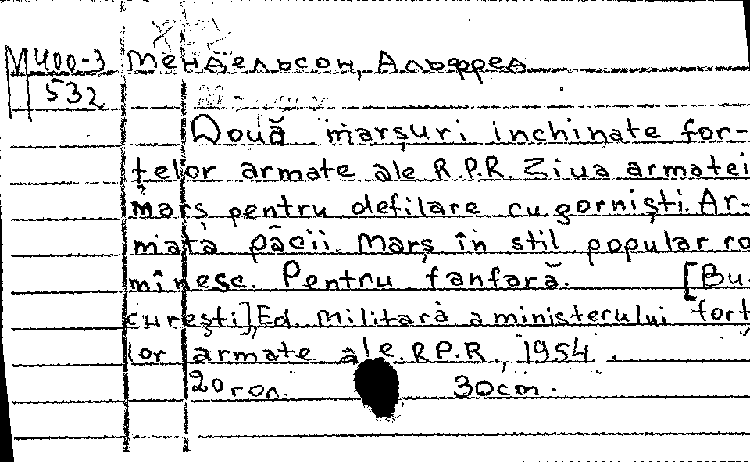 М400-3 Мендельсон, Альфред
532
Două marşuri inchinate for-
ţelor armate ale R.P.R. Ziua armatei
marş pentru defilare cu gornişti. Ar-
mata păcii. Marş în stil popular ro
mînesc. Pentru fanfară. [Bu-
cureşti], Ed. Militară a ministerului forţ
lor armate ale R.P.R., 1954.
20 гол. 30cm.